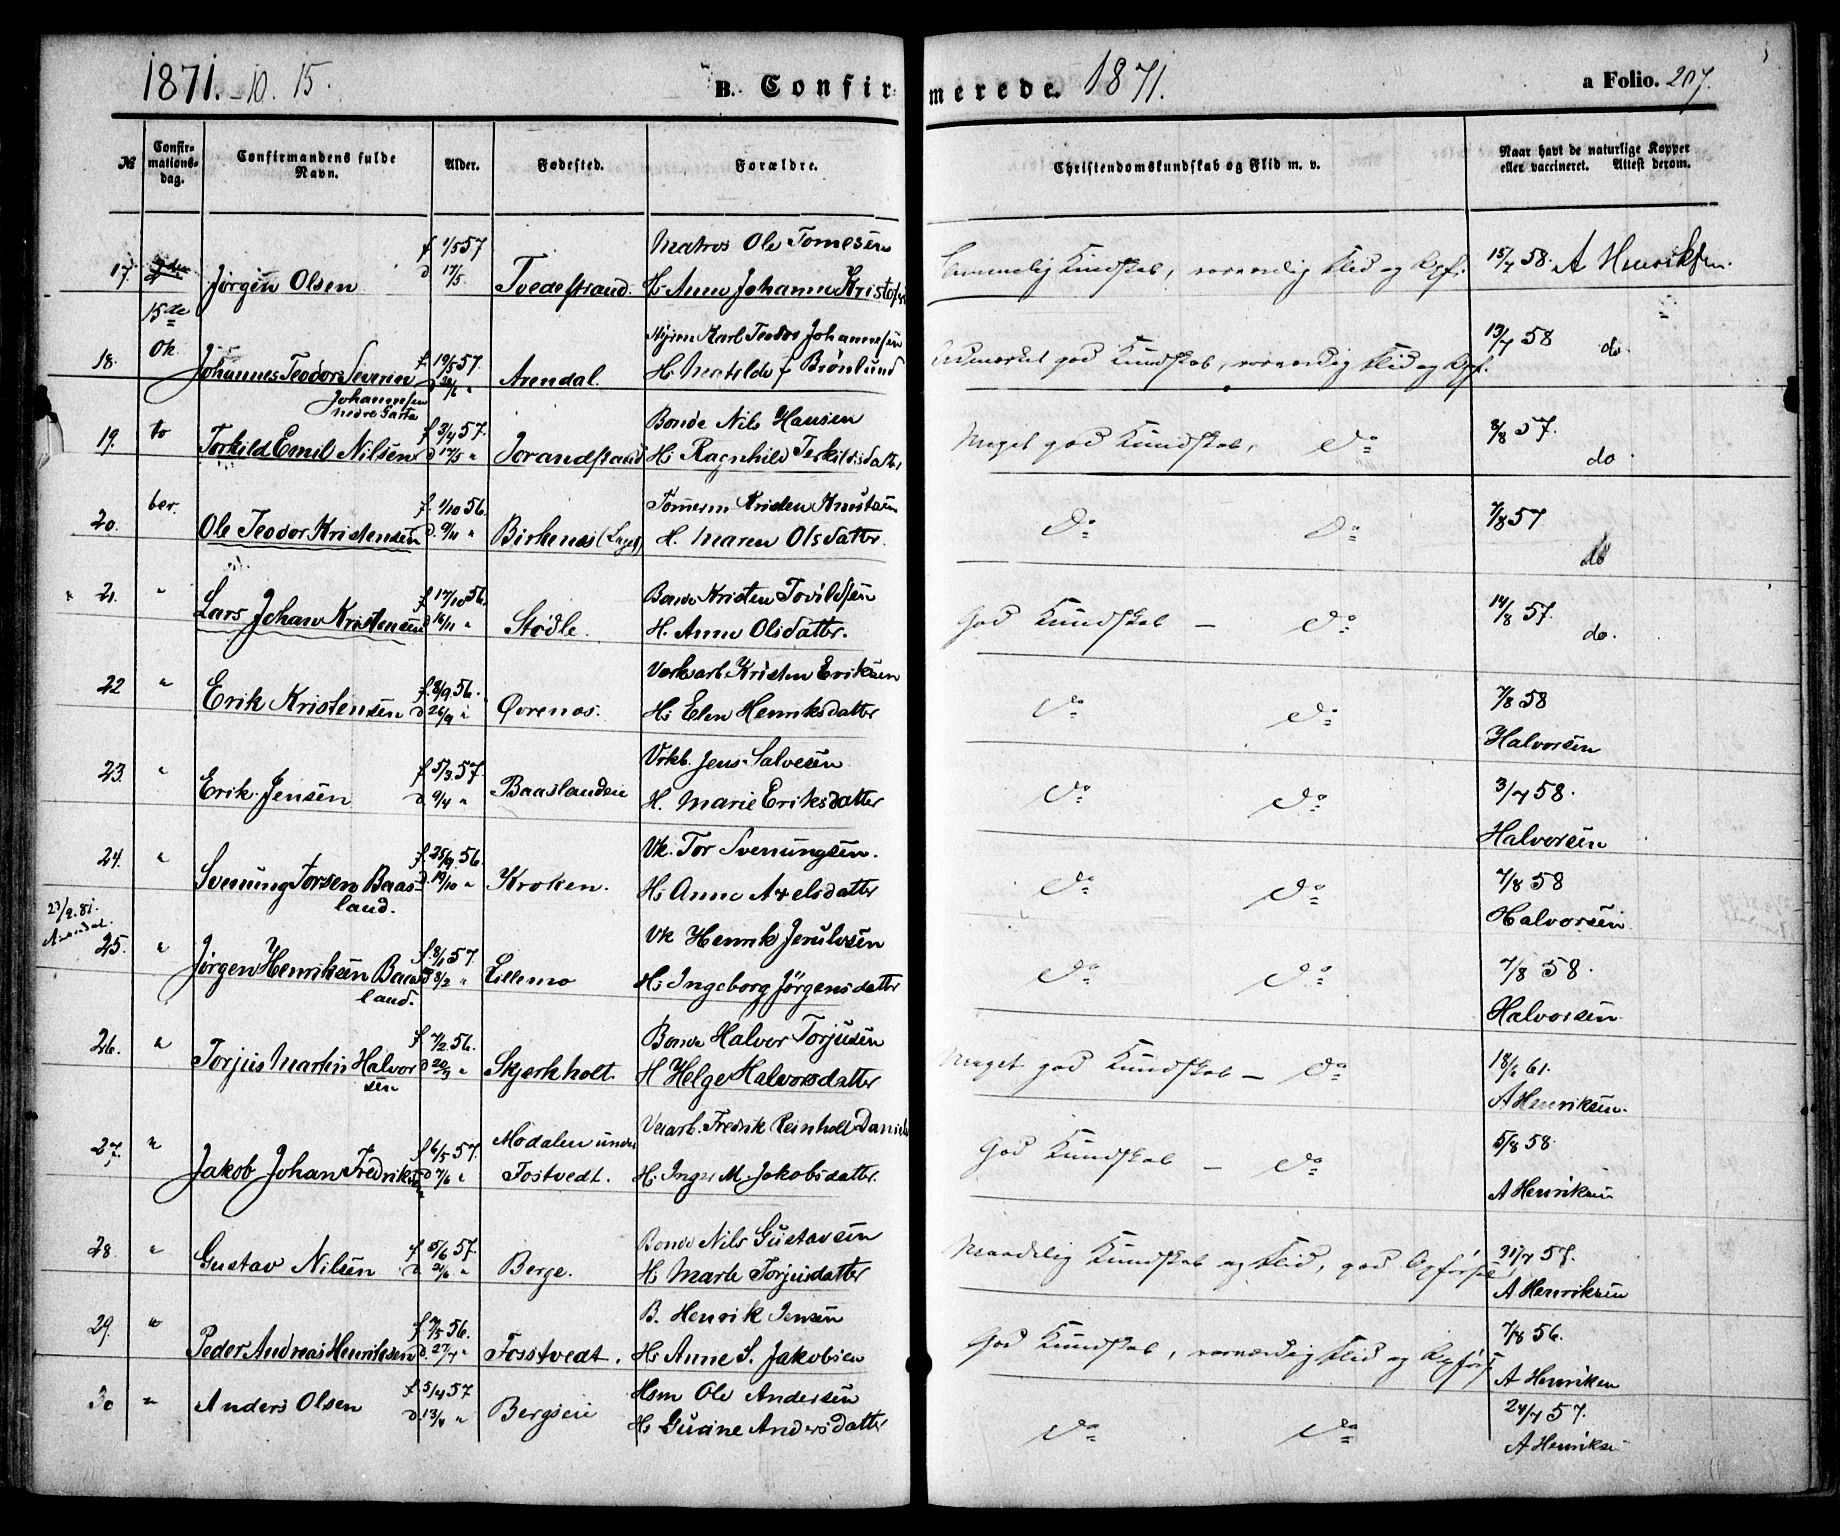 1871. 10. 15.
B. Confirmerede. 1871.
a Folio. 207.
№ Confirmations-dag. Confirmandens fulde Navn. Alder. Fødested. Forældre. Christendomskundskab og Flid m. v. Naar havt de naturlige Kopper eller vaccineret. Attest derom.
f 1/5 57 Matros Ole Tomesen
17. Jørgen Olsen d 17/5. Tvedestrand. H. Anne Johanne Kristofs Kundskab, Flid og Opf. 15/7 58. A Henriksen.
15de
Ok Karl Teodor Johannesen
18. Johannes Teodor Severin f 19/5 57 Arendal. H. Matilde f Brönlund Udmerket god Kundskab, Flid og Opf. 13/7 58 do.
Johannesen
nedre Garta
19. to Torkild Emil Nilsen f 3/4 57. d 17/5 " Bonde Nils Hansen
Jorandstad H. Ragnhild Terkildsdatter Meget god Kundskab, do 8/8 57. do.
20. ber. Ole Teodor Kristensen f. 1/10 56. d. 9/11 " Kristen Knutsen
Birkenes H. Maren Olsdatter. do do 7/8 57 do
21. " Lars Johan Kristensen f 17/10 56. d 16/11 " Bonde Kristen Tovildsen
Stødle. H. Anne Olsdatter. God Kundskab — do 14/8 57. do.
22 " Erik Kristensen f. 8/9 56. d 26/9 " Verkarb. Kristen Eriksen
Øvrenes. H. Elen Henriksdatter do do 7/8 58
Halvorsen
23. " Erik Jensen f 5/3 57. d. 9/4 " Vrkb. Jens Salvesen
Baaslanden H. Marie Eriksdatter do do 3/7 58.
Halvorsen
24. " Svenung Torsen Baas- f. 25/9 56. d. 19/10 " Vk. Tor Svenungsen.
land. Kroken. H. Anne Axelsdatter do do 7/8 58
Halvorsen
23/2. 81.
Arendal
25. " Jørgen Henriksen Baas f. 8/1 57. 8/2 " Vk Henrik Jerulvsen
land. Lillemo H. Ingeborg Jörgensdatter do do 7/8 58.
Halvorsen
26. " Torjus Martin Halvor f 7/2 56. d 20/3 " Bonde Halvor Torjusen
sen Skjerkholt. H Helge Halvorsdatter Meget god Kundskab — do 18/6 61.
A Henriksen.
27. " Jakob Johan Fredriksen f 6/5 57. d 7/6 " Modalen under Fredrik Reinholt Daniels
Fostvedt. H. Inger M. Jakobsdatter. God Kundskab — do 5/8 58.
A Henriksen
28. " Gustav Nilsen f 5/6 57. d 21/6 " Bonde Nils Gustavsen
Berge. H Marte Torjusdatter Maadelig Kundskab og Flid, god Opførsel 31/7 57.
A Henriksen
29. " Peder Andreas Henriksen f 7/5 56. d. 27/7 " B. Henrik Jensen
Fosstvedt. H. Anne S. Jakobsen God Kundskab, Flid og Opførs. 7/8 56.
A Henriken
30 " Anders Olsen f. 5/4 57 d. 13/4 " Hsm Ole Andersen
Bergseie H. Guane Andersdatter do do 24/7 57.
A Henriksen